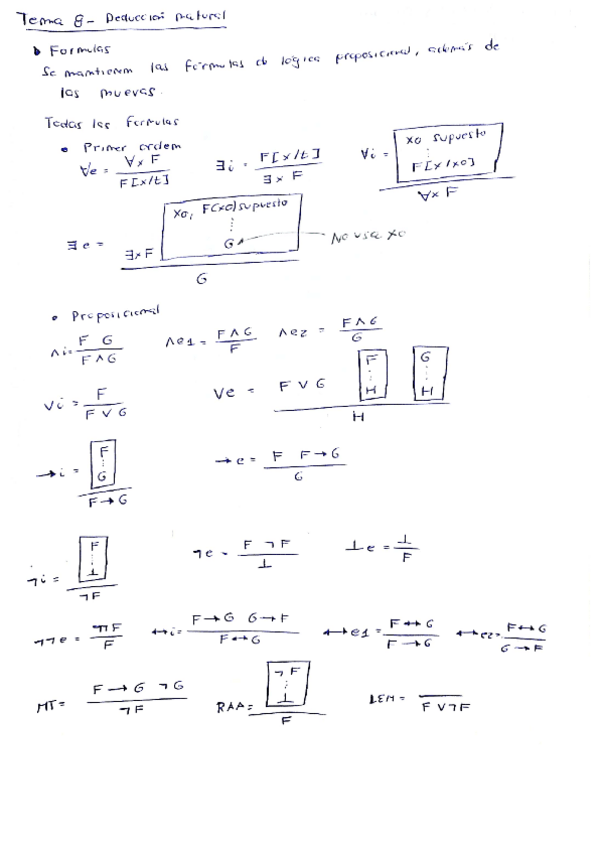 Tema 8 - Deducción natural
Formulas
Se mantienen las fórmulas de lógica proposicional, además de
las nuevas.
Todas las formulas
• Primer orden
∀e = ∀x F / F[x/t]   ∃i = F[x/t] / ∃x F   ∀i = x0 supuesto ⋮ F[x/x0] / ∀x F
∃e = ∃x F   x0, F(x0) supuesto ⋮ G / G   No use x0
• Proposicional
∧i = F G / F∧G   ∧e1 = F∧G / F   ∧e2 = F∧G / G
∨i = F / F∨G   ∨e = F∨G   F ⋮ H   G ⋮ H / H
→i = F ⋮ G / F→G   →e = F F→G / G
¬i = F ⋮ ⊥ / ¬F   ¬e = F ¬F / ⊥   ⊥e = ⊥ / F
¬¬e = ¬¬F / F   ↔i = F→G G→F / F↔G   ↔e1 = F↔G / F→G   ↔e2 = F↔G / G→F
MT = F→G ¬G / ¬F   RAA = ¬F ⋮ ⊥ / F   LEM = / F∨¬F